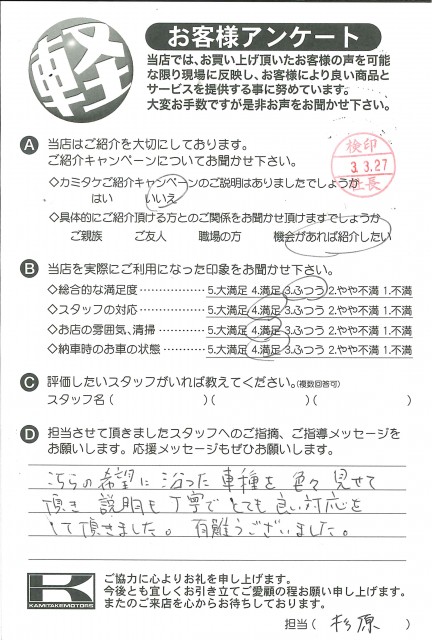 軽
お客様アンケート
当店では、お買い上げ頂いたお客様の声を可能
な限り現場に反映し、お客様により良い商品と
サービスを提供する事に努めています。
大変お手数ですが是非お声をお聞かせ下さい。
A 当店はご紹介を大切にしております。
ご紹介キャンペーンについてお聞かせ下さい。
検印
3.3.27
社長
◇カミタケご紹介キャンペーンのご説明はありましたでしょうか
はい いいえ
◇具体的にご紹介頂ける方とのご関係をお聞かせ頂けますでしょうか
ご親族 ご友人 職場の方 機会があれば紹介したい
B 当店を実際にご利用になった印象をお聞かせ下さい。
◇総合的な満足度 ・・・・・・・・・・・・・・ 5.大満足 4.満足 3.ふつう 2.やや不満 1.不満
◇スタッフの対応 ・・・・・・・・・・・・・・ 5.大満足 4.満足 3.ふつう 2.やや不満 1.不満
◇お店の雰囲気、清掃 ・・・・・・・・・ 5.大満足 4.満足 3.ふつう 2.やや不満 1.不満
◇納車時のお車の状態 ・・・・・・・・・ 5.大満足 4.満足 3.ふつう 2.やや不満 1.不満
C 評価したいスタッフがいれば教えてください。(複数回答可)
スタッフ名( )( )( )
D 担当させて頂きましたスタッフへのご指摘、ご指導メッセージを
お願いします。応援メッセージもぜひお願いします。
こちらの希望に沿った車種を色々見せて
頂き 説明も丁寧でとても良い対応を
して頂きました。有難うございました。
K
KAMITAKEMOTORS
ご協力に心よりお礼を申し上げます。
今後とも宜しくお引き立てご愛顧の程お願い申し上げます。
またのご来店を心からお待ちしております。
担当( 杉原 )